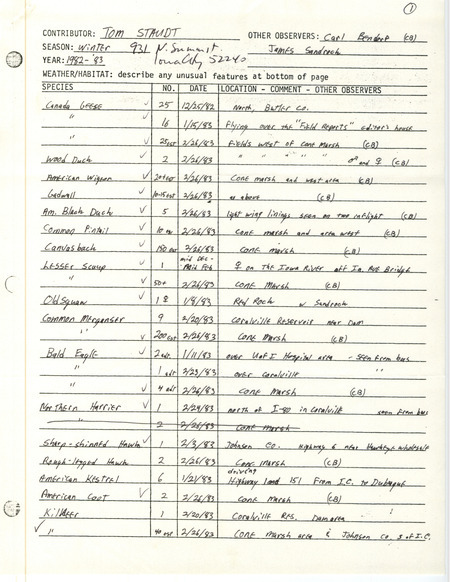 ①
CONTRIBUTOR: TOM STAUDT OTHER OBSERVERS: Carl Bendorf (CB)
SEASON: Winter 931 N. Summit James Sandrock
YEAR: 1982-'83 Iowa City 52240
WEATHER/HABITAT: describe any unusual features at bottom of page
SPECIES NO. DATE LOCATION - COMMENT - OTHER OBSERVERS
Canada Geese ✓ 25 12/25/82 North, Butler Co.
" ✓ 16 1/15/83 Flying over the "Field Reports" editor's house
✓ 2/26/83 Fields west of Cone Marsh (CB)
Wood Duck ✓ 2 2/26/83 " " " " ♂ and ♀ (CB)
American Wigeon ✓ 2/26/83 Cone marsh and west area (CB)
Gadwall ✓ 2/26/83 as above (CB)
Am. Black Duck ✓ 5 2/26/83 light wing linings seen on two inflight (CB)
Common Pintail ✓ 2/26/83 Cone marsh and area west (CB)
Canvasback ✓ 150 est 2/26/83 Cone marsh (CB)
Lesser Scaup ✓ 1 mid Dec - Mid Feb ♀ on The Iowa River off Ia. Ave Bridge
✓ 50+ 2/26/83 Cone Marsh (CB)
Oldsquaw ✓ 1 ♀ 1/8/83 Red Rock w Sandrock
Common Merganser 9 2/20/83 Coralville Reservoir near Dam
" ✓ 200 est 2/26/83 Cone Marsh (CB)
Bald Eagle ✓ 2 adt. 1/11/83 over U of I Hospital area - seen from bus
1 adt 2/23/83 over Coralville "
" ✓ 4 adt 2/26/83 Cone Marsh (CB)
Northern Harrier ✓ 1 2/24/83 north of I-80 in Coralville seen from bus
" 2 2/26/83 Cone Marsh
Sharp-shinned Hawk ✓ 1 2/3/83 Johnson Co. Highway 6 near Hawkeye Wholesale
Rough-legged Hawk 2 2/26/83 Cone Marsh (CB)
American Kestrel 6 1/21/83 driving Highway 1 and 151 From I.C. to Dubuque
American Coot ✓ 2 2/26/83 Cone Marsh (CB)
Killdeer 1 2/20/83 Coralville Res. Dam area
✓ " 40 est 2/26/83 Cone Marsh area & Johnson Co. S of I.C.